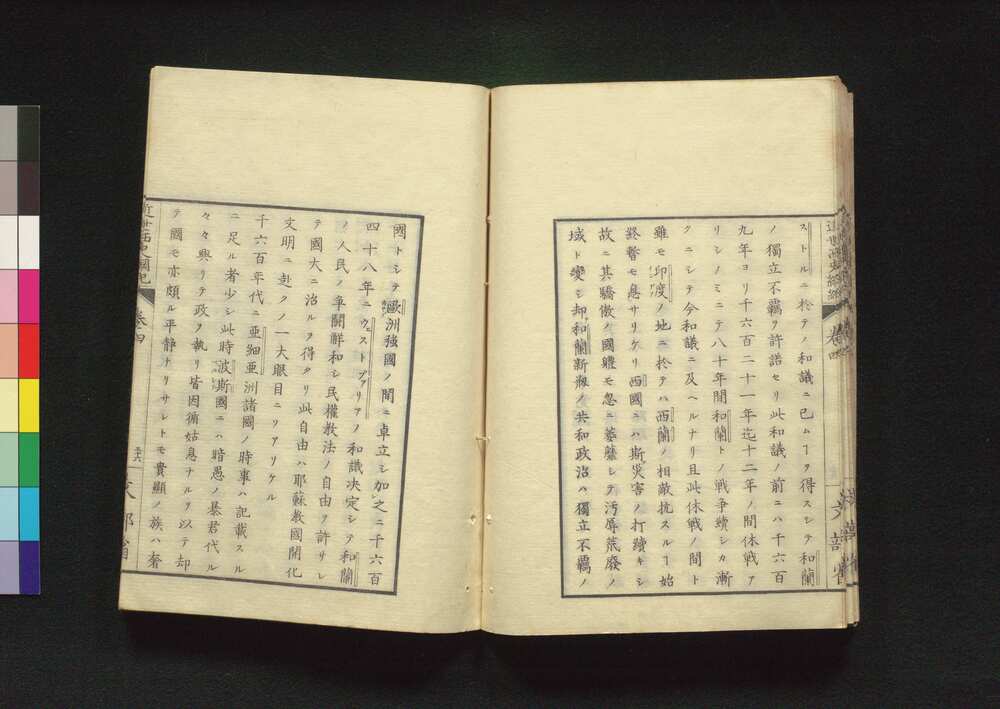 ストルニ於テノ和議ニ已ムヿヲ得スシテ和蘭
ノ獨立不羈ヲ許諾セリ此和議ノ前ニハ千六百
九年ヨリ千六百二十一年迄十二年ノ間休戦ア
リシノミニテ八十年間和蘭トノ戦争續シカ漸
クニシテ今和議ニ及ヘルナリ且此休戦ノ間ト
雖モ印度ノ地ニ於テハ西蘭ノ相敵抗スルヿ始
終瞥モ息サリケリ西國ニハ斯災害ノ打續キシ
故ニ其驕傲ノ國軆モ忽ニ萎靡シテ汚辱荒廢ノ
域ト變シ却和蘭新興ノ共和政治ハ獨立不羈ノ
國トシテ歐洲強國ノ間ニ卓立シ加之ニ千六百
四十八年ニウェストファリアノ和議决定シテ和蘭
ノ人民ノ争鬪解和シ民權教法ノ自由ヲ許サレ
テ國大ニ治ルヲ得タリ此自由ハ耶蘇教國開化
文明ニ赴クノ一大眼目ニリアリケル
千六百年代ニ亜細亜洲諸國ノ時事ハ記載スル
ニ足ル者少シ此時波斯國ニハ暗愚ノ暴君代ル
々々興リテ政ヲ執リ皆因循姑息ナルヲ以テ却
テ國モ亦頗ル平静ナリサレトモ貴顯ノ族ハ奢
近世西史國記
卷四
文部省